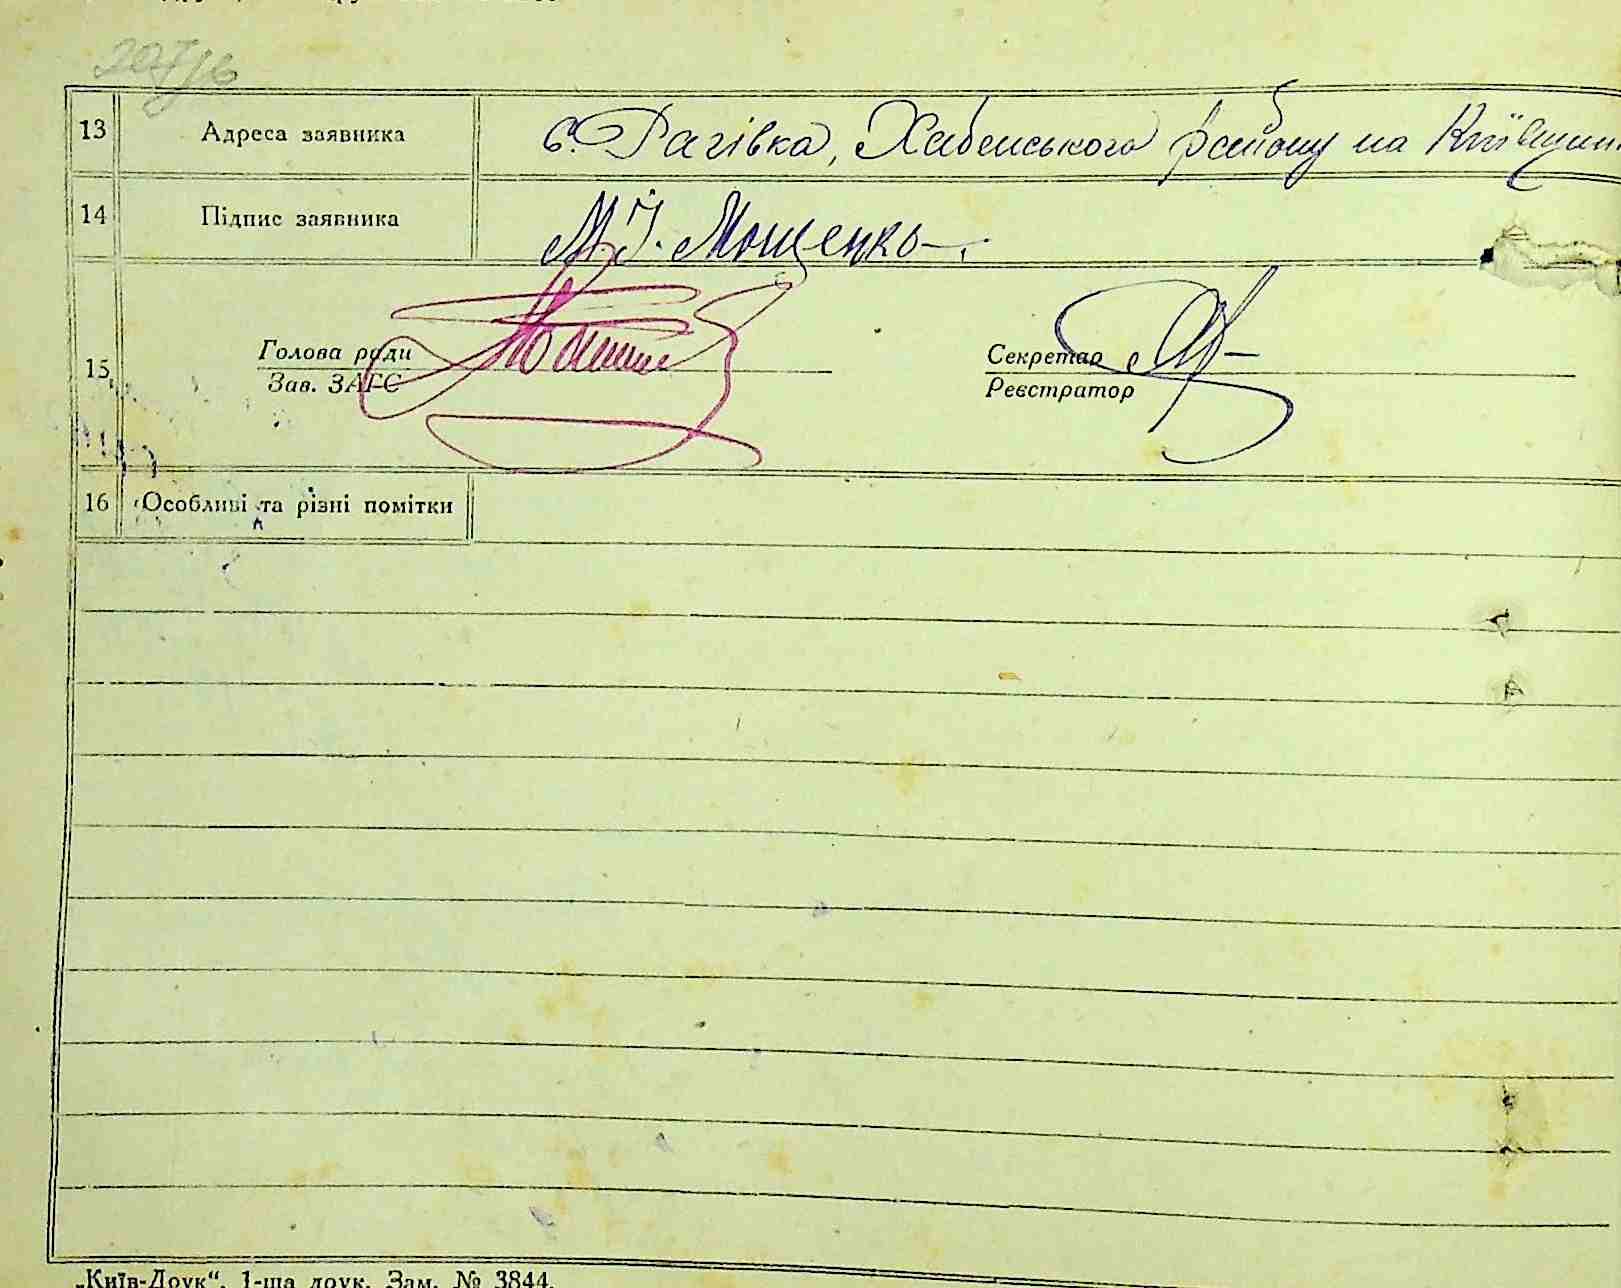 13 Адреса заявника с. Рагівка, Хабенського району на Київщині
14 Підпис заявника М. І. Мощенко
15 Голова ради Секретар
Зав. ЗАГС Реєстратор
16 Особливі та різні помітки
„Київ-Друк“. 1-ша друк. Зам. № 3844.